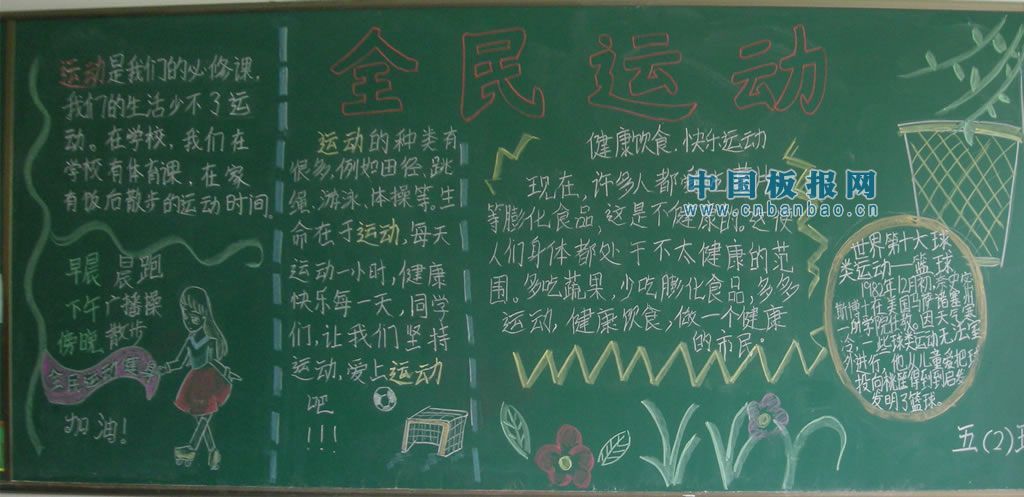 全民运动
运动是我们的必修课,
我们的生活少不了运
动。在学校,我们在
学校有体育课,在家
有饭后散步的运动时间。
早晨 晨跑
下午 广播操
傍晚 散步
全民运动 健身
加油!
运动的种类有
很多,例如田径、跳
绳、游泳、体操等。生
命在于运动,每天
运动一小时,健康
快乐每一天,同学
们,让我们坚持
运动,爱上运动
吧
!!!
健康饮食,快乐运动
现在,许多人都
等膨化食品,这是不健康的。这使
人们身体都处于不太健康的范
围。多吃蔬果,少吃膨化食品,多多
运动,健康饮食,做一个健康
的市民。
中国板报网
www.cnbanbao.cn
世界第十大球
类运动——篮球
12月初,
斯博士在美国马萨诸塞州
一所学院任教。因天
一些球类运动无法室
外进行,他从儿童
投向
发明了篮球。
五(2)